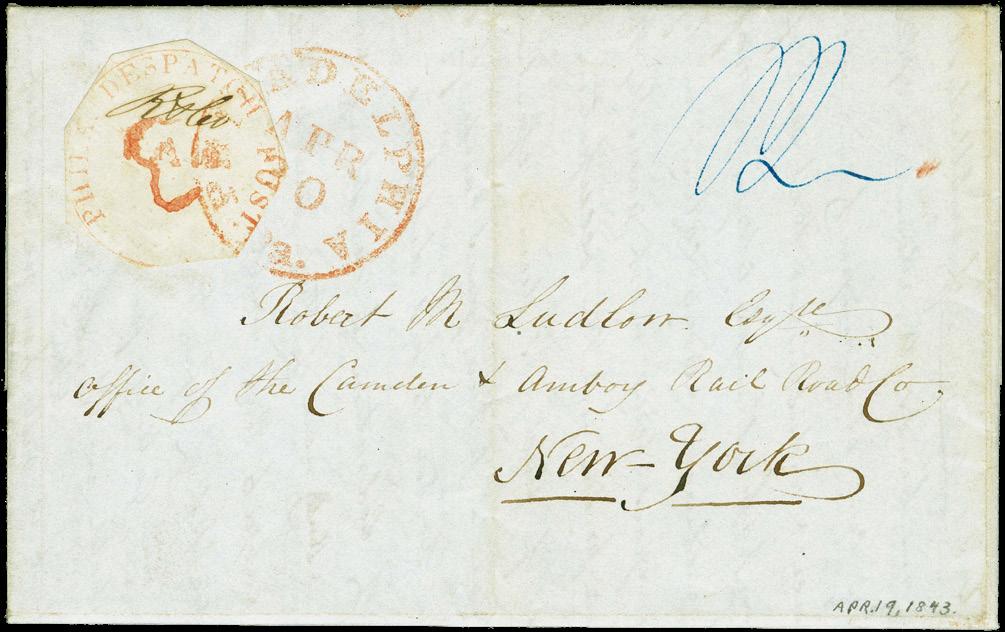 PHILA DESPATCH POST.
R & Co
3
DELPHIA
APR
Robert M Ludlow Esqre
office of the Camden & Amboy Rail Road Co
New-York
APR. 19, 1843.